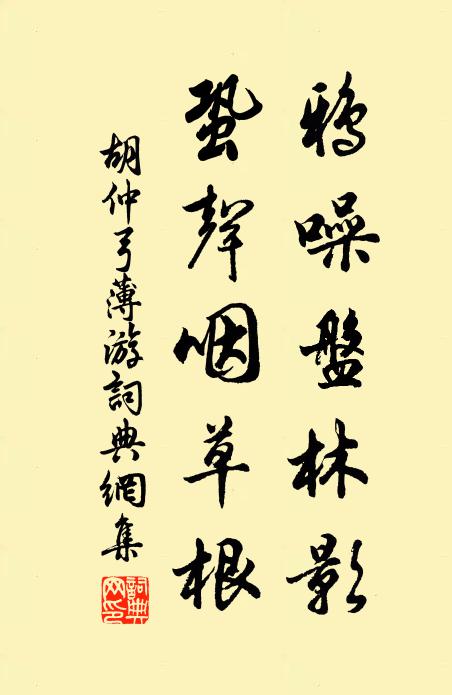 鴉噪盤林影
蛩聲咽草根
胡仲弓薄游詞典網集
詞典網印